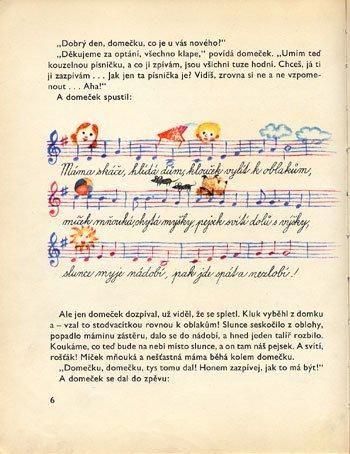 „Dobrý den, domečku, co je u vás nového!"
„Děkujeme za optání, všechno klape," povídá domeček. „Umím teď
kouzelnou písničku, a co jí zpívám, jsou všichni tuze hodní. Chceš, já ti
ji zazpívám . . . Jak jen ta písnička je? Vidíš, zrovna si ne a ne vzpome-
nout . . . Aha!"
A domeček spustil:
Máma skáče, hlídá dům, klouček vylít k oblakům,
míček mňouká, chytá myšky, pejsek svítí dolů s výšky,
slunce myje nádobí, pak jde spát a nezlobí.!
Ale jen domeček dozpíval, už viděl, že se spletl. Kluk vyběhl z domku
a – vzal to stodvacítkou rovnou k oblakům! Slunce seskočilo z oblohy,
popadlo máminu zástěru, dalo se do nádobí, a hned jeden talíř rozbilo.
Koukáme, co teď bude na nebi místo slunce, a on tam náš pejsek. A svítí,
rošťák! Míček mňouká a nešťastná máma běhá kolem domečku.
„Domečku, domečku, tys tomu dal! Honem zazpívej, jak to má být!"
A domeček se dal do zpěvu:
6